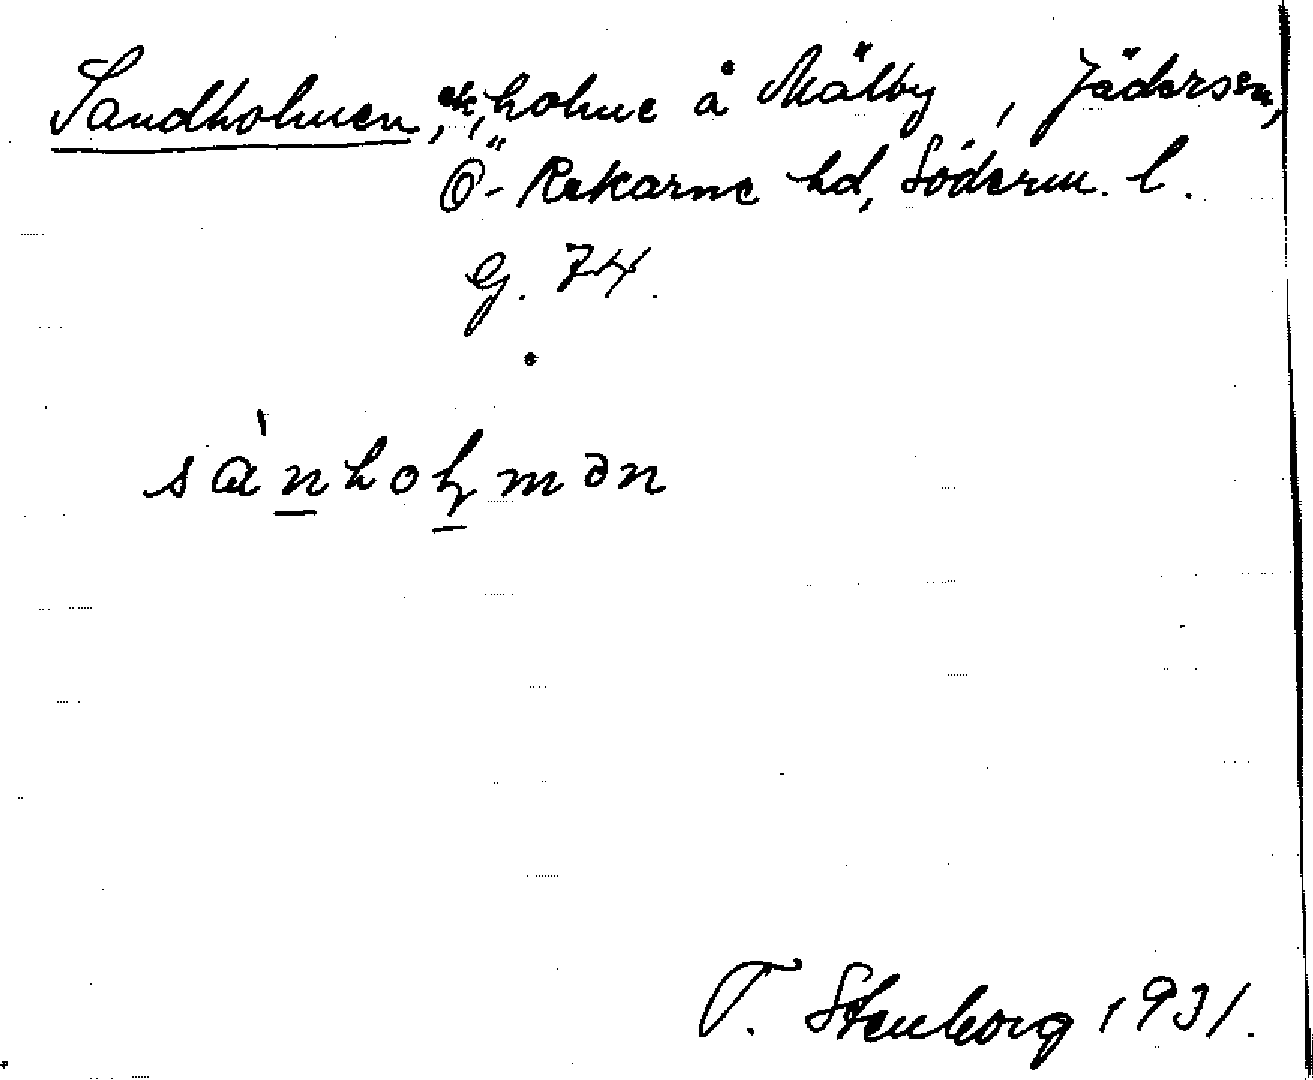 Sandholmen, ek, holme å Mälby, Jäders sn,
Ö-Rekarne hd, Söderm. l.
G. 74.
sànholmən
T. Stenborg 1931.